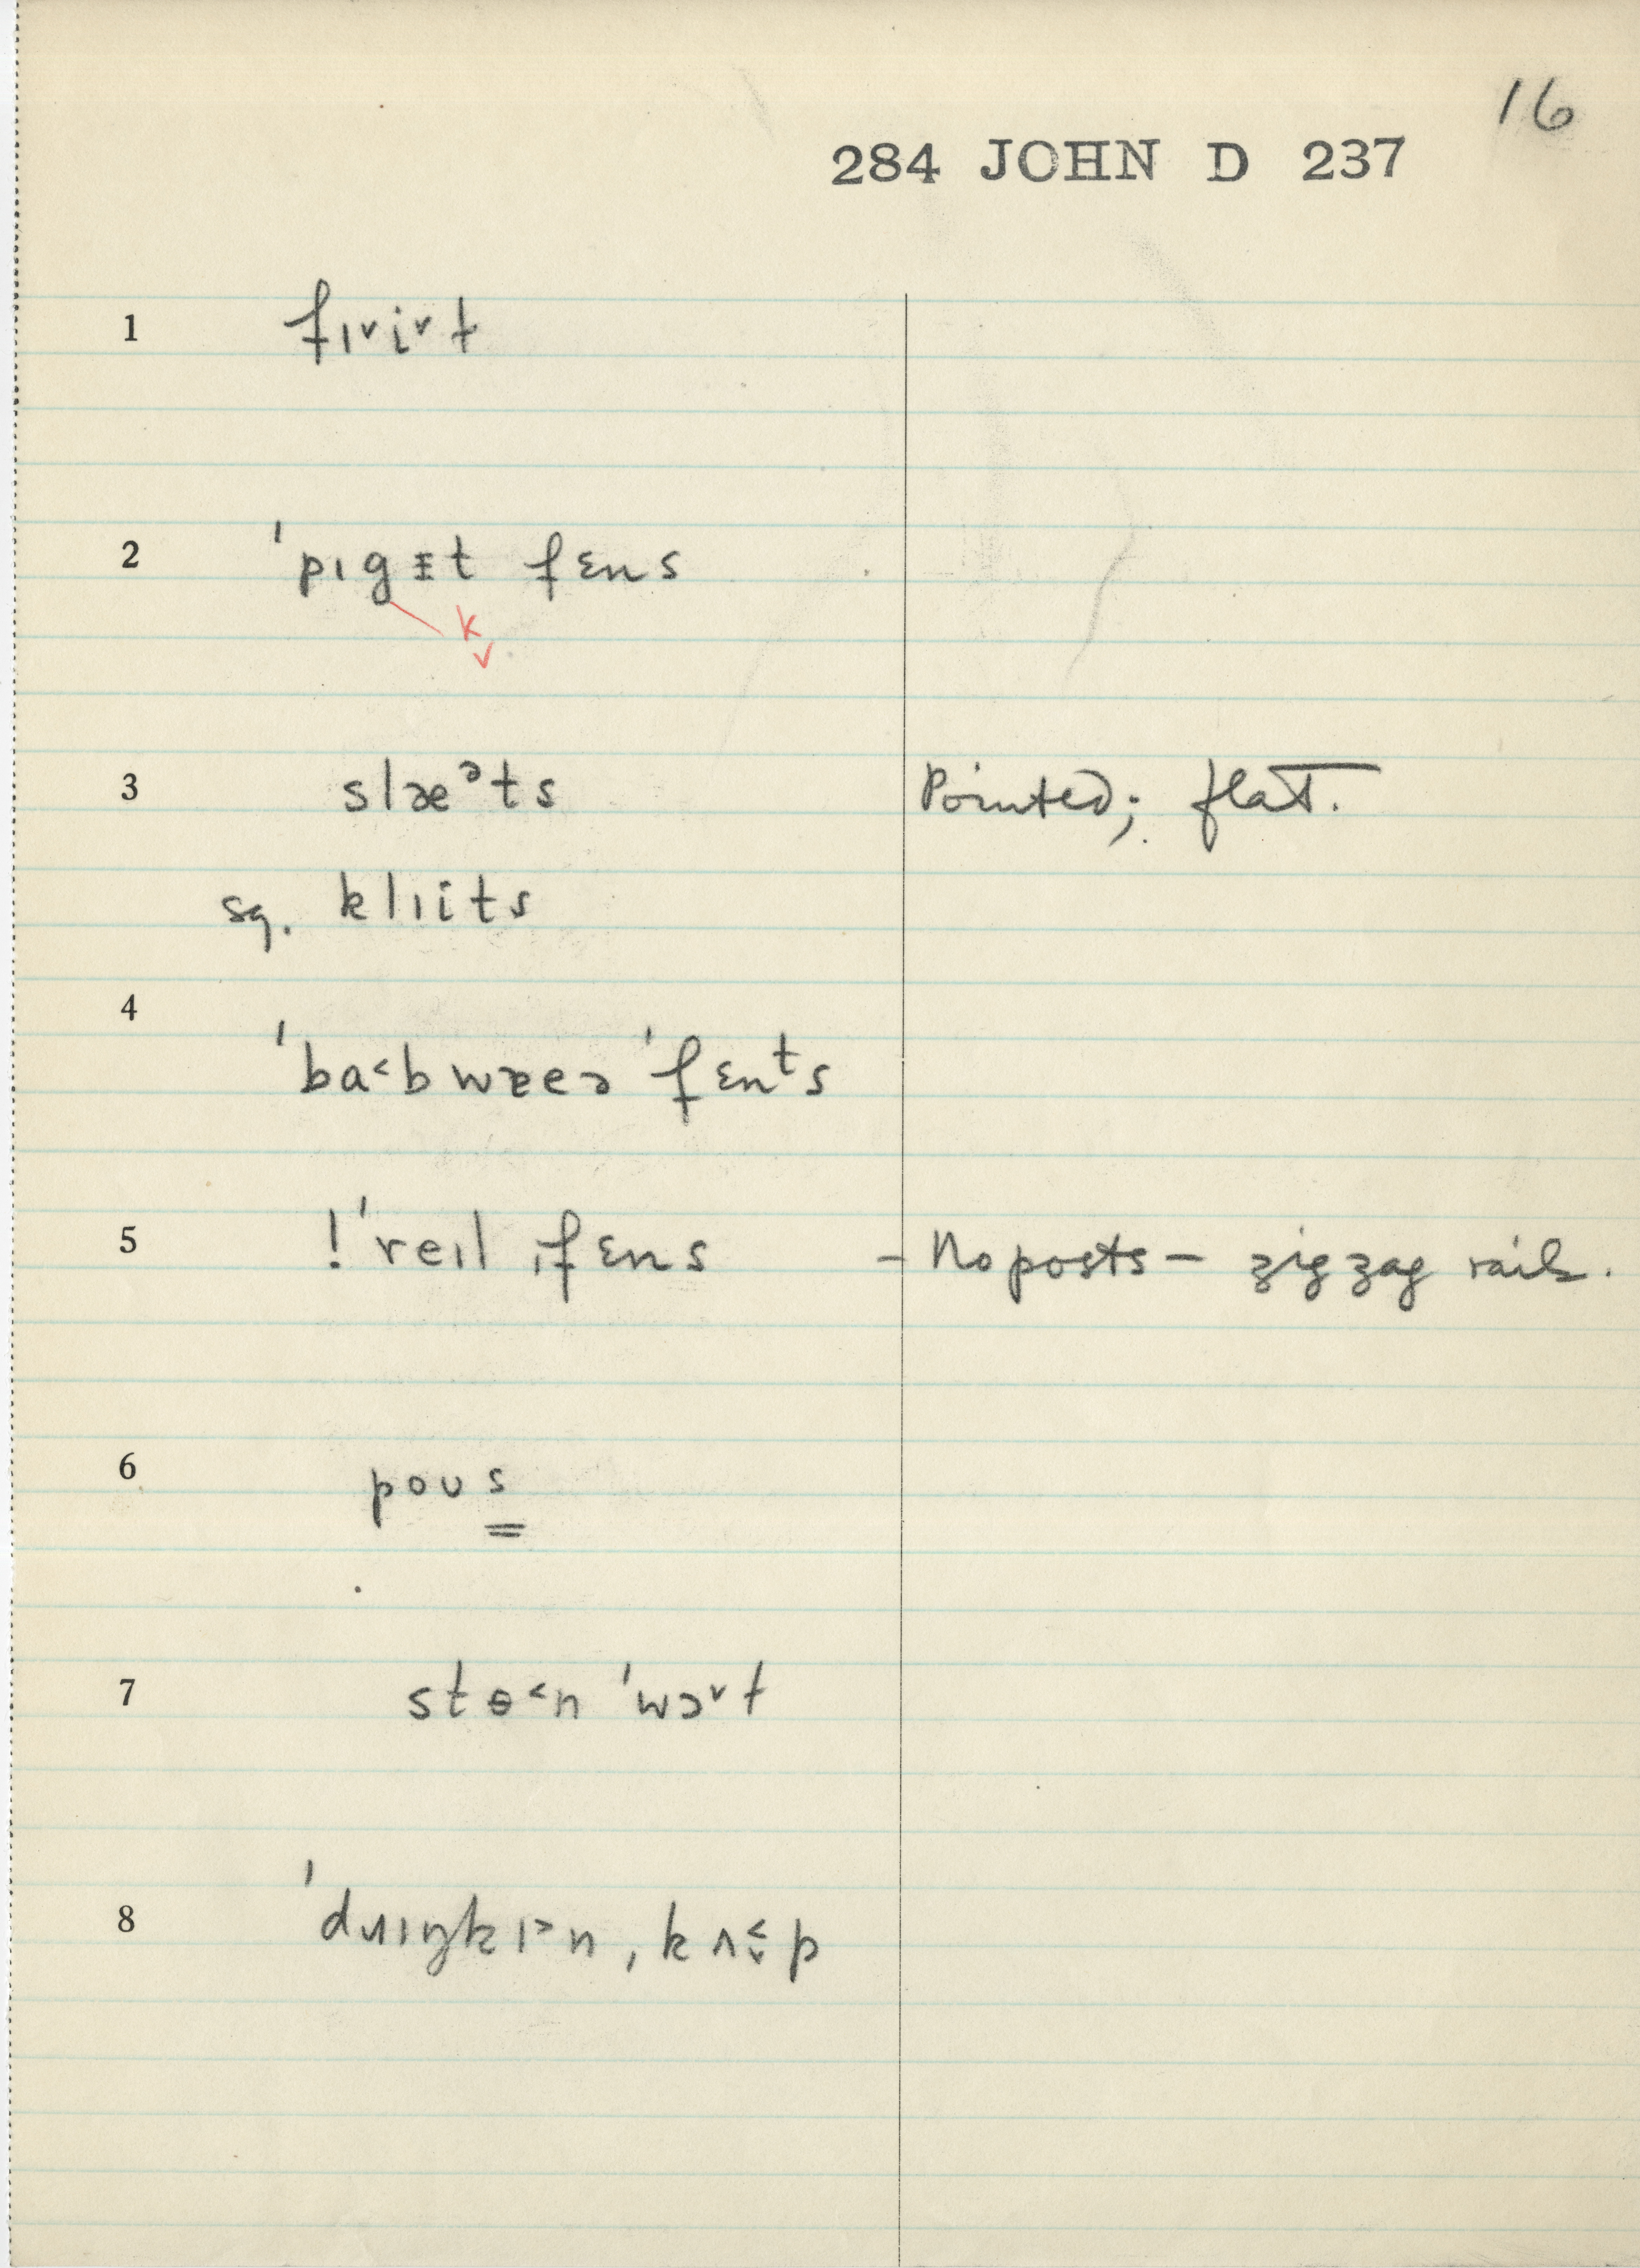 16
284 JOHN D 237
1 fɪ˅i˅t
2 ˈpɪgɪ̵t fɛns
k
˅
3 slæᵊts Pointed; flat.
sg. klɪits
4 ˈba˂bwæeɘ ˈfɛnᵗs
5 !ˈreɪl ˌfɛns – No posts – zigzag rails.
6 poʊs
7 stɵ˂n ˈwɔ˅t
8 ˈdɹɪŋkɪ˃n ,kʌ˂˅p